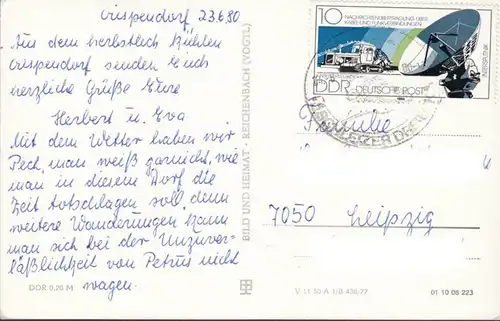 Crispendorf 23.6.80
Aus dem herbstlich kühlen
Crispendorf senden Euch
herzliche Grüße Eure
Herbert u. Eva
Mit dem Wetter haben wir
Pech, man weiß garnicht, wie
man in diesem Dorf die
Zeit totschlagen soll, denn
weitere Wanderungen kann
man sich bei der Unzuver-
läßlichkeit von Petrus nicht
wagen.
DDR 0,20 M
BILD UND HEIMAT · REICHENBACH (VOGTL)
10 NACHRICHTENÜBERTRAGUNG ÜBER
KABEL- UND FUNKVERBINDUNGEN
DDR DEUTSCHE POST
SCHLEIZER
Familie
7050 Leipzig
V 11 50 A 1/B 438/77
01 10 08 223